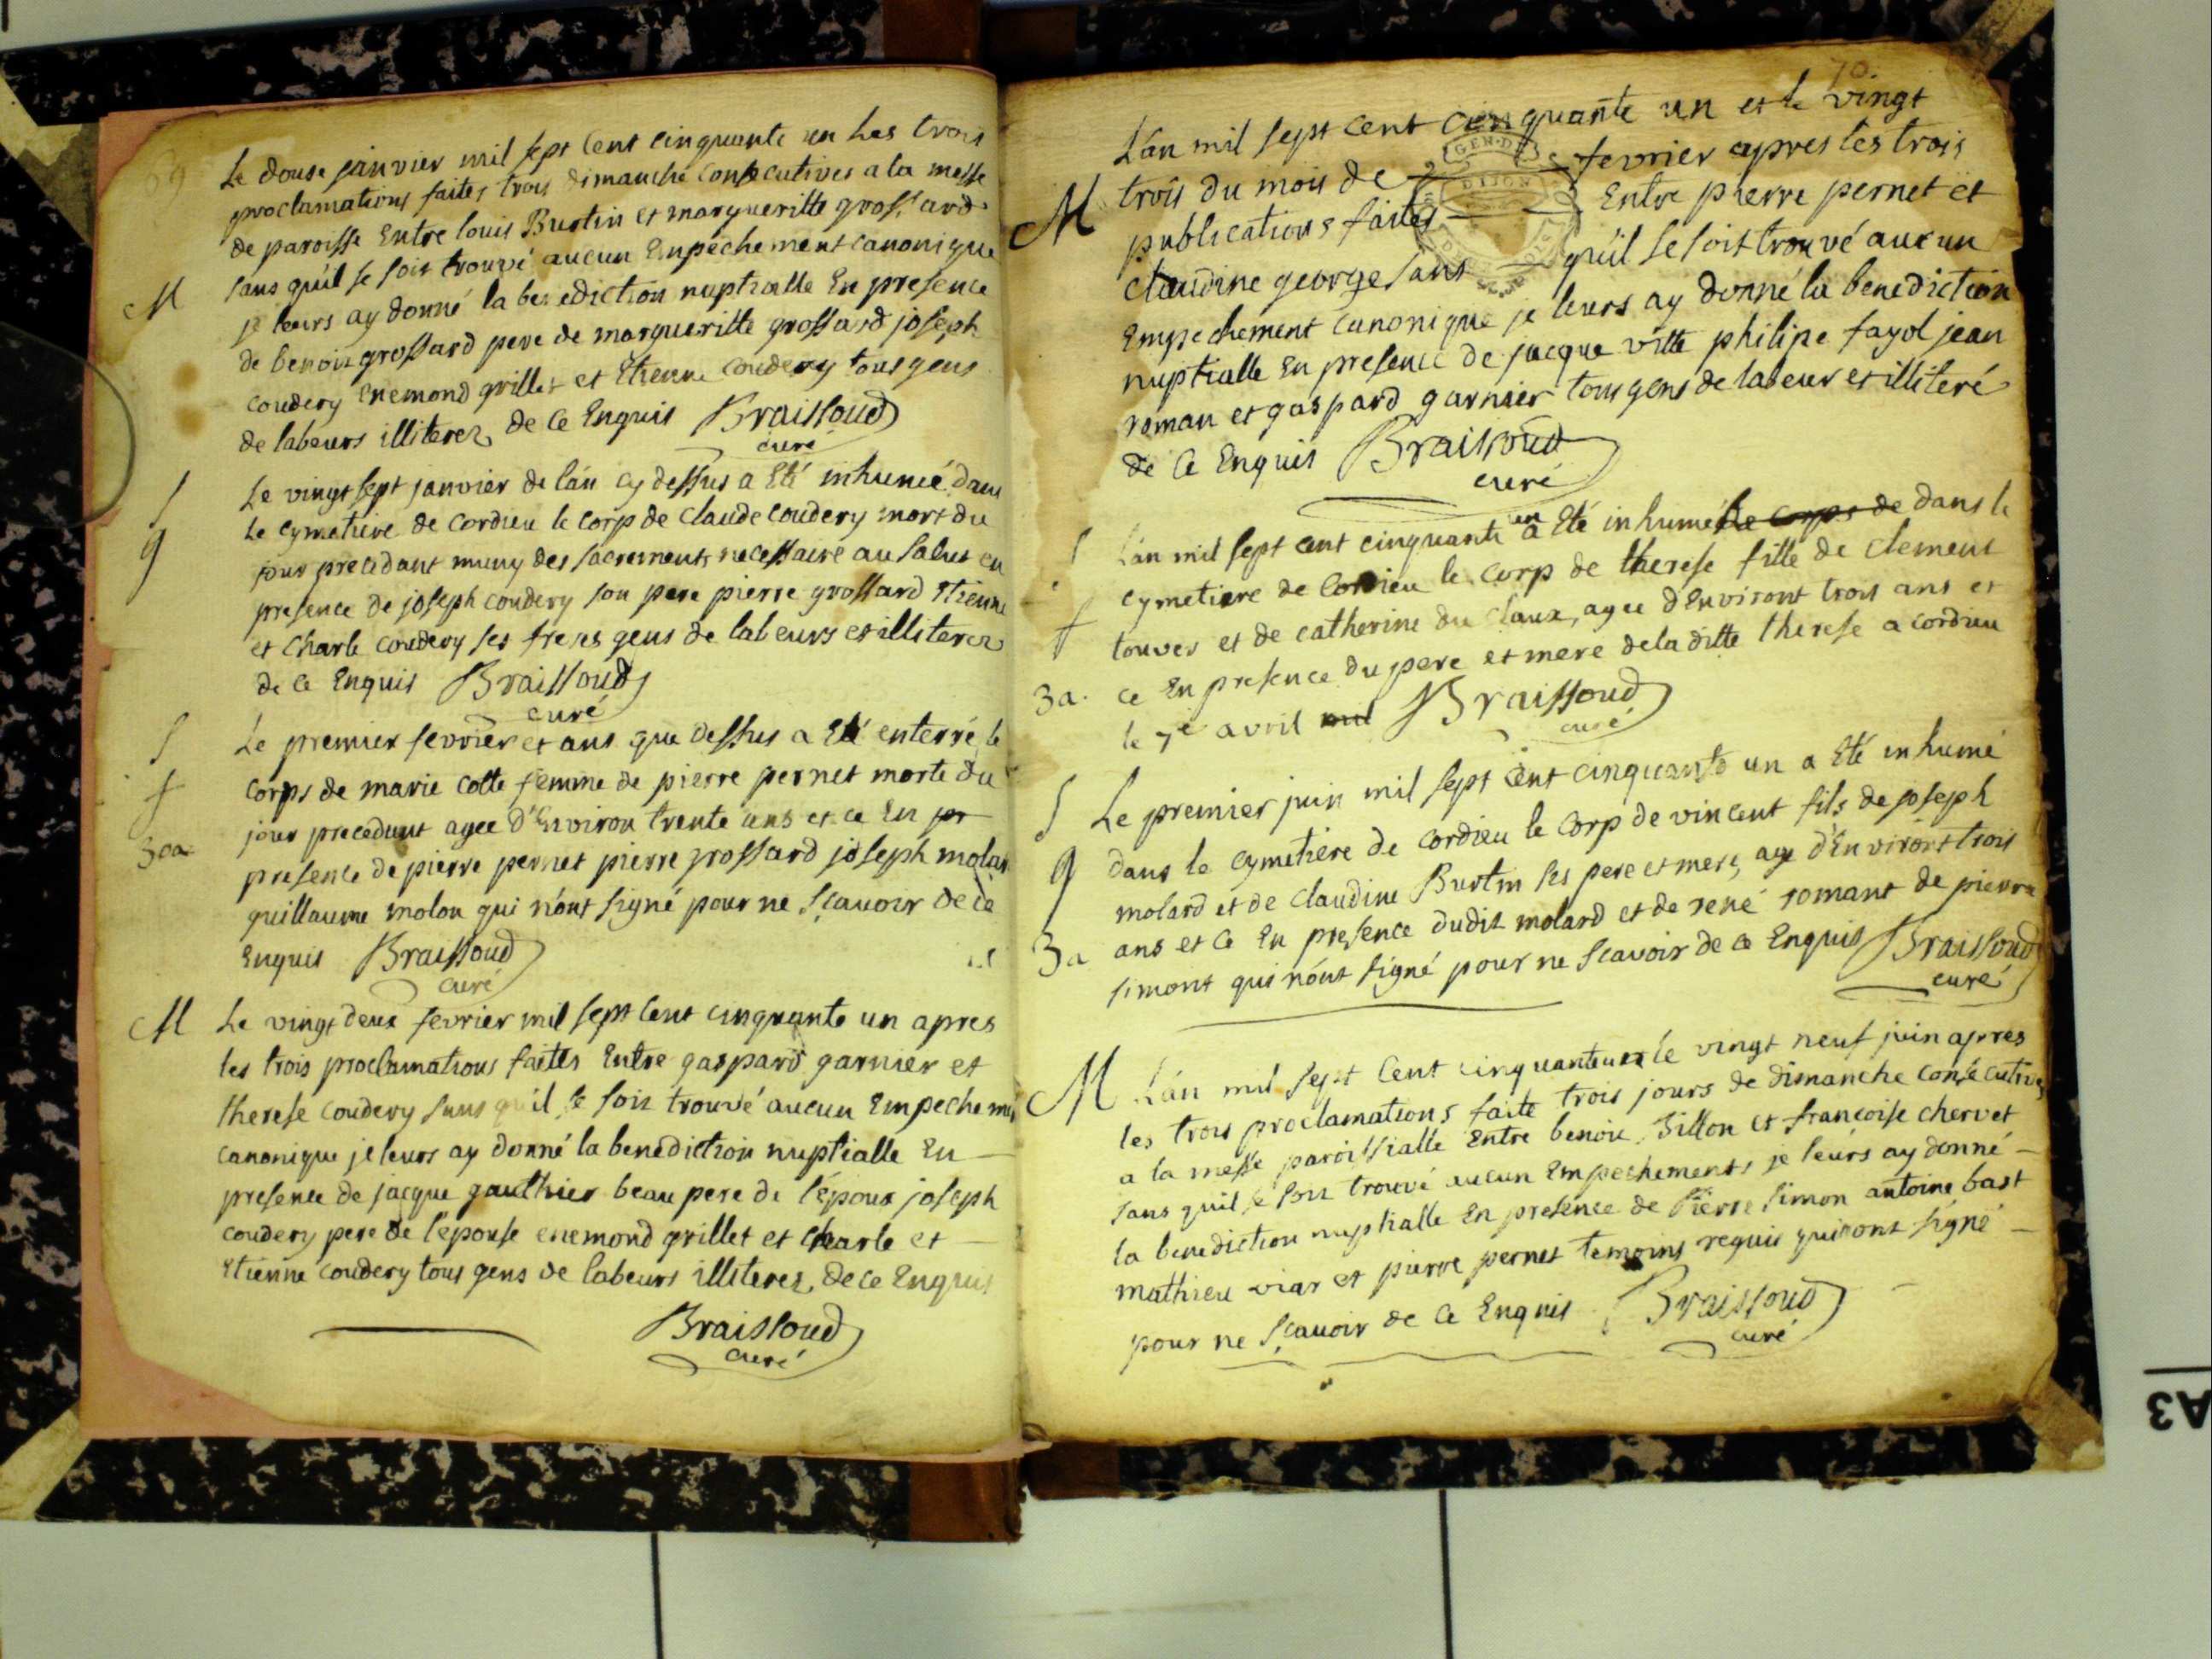 69
Le douse janvier mil sept cent cinquante un Les trois
proclamations faites trois dimanche consecutives a la messe
de paroisse Entre louis Burtin et margueritte grossard
M
sans qu'il se soit trouvé aucun Empechement canonique
je leurs ay donné la benediction nuptialle En presence
de benoit grossard pere de margueritte grossard joseph
coudery enemond grillet et Etienne coudery tous gens
de labeurs illiterez de ce Enquis Braissoud
curé
S
Le vingt sept janvier de l'an cy dessus a Eté inhumé dans
g
le cymetiere de Cordieu le corp de claude coudery mort du
jour precedant muny des sacrements necessaire au salut en
presence de joseph coudery son pere pierre grossard Etienne
et Charle coudery ses freres gens de labeurs et illiterez
de ce Enquis Braissoud
curé
S
Le premier fevrier et ans que dessus a Eté enterré le
f
corps de marie colte femme de pierre pernet morte du
30a
jour precedant agee d'Environ trente ans et ce En pr
presence de pierre pernet pierre grossard joseph molar
guillaume molon qui n'ont signé pour ne sçavoir de ce
Enquis Braissoud
curé
M
Le vingt deux fevrier mil sept cent cinquante un apres
les trois proclamations faites Entre gaspard garnier et
therese coudery sans qu'il se soit trouvé aucun Empecheme
canonique je leurs ay donné la benediction nuptialle En
presence de jacque gauthier beau pere de l'épous joseph
coudery pere de l'epouse enemond grillet et charle et
Etienne coudery tous gens de labeurs illiterez de ce Enquis
Braissoud
curé
70
L'an mil sept cent cinquante un et le vingt
M
trois du mois de fevrier apres les trois
publications faites Entre pierre pernet et
claudine george sans qu'il se soit trouvé aucun
Empechement canonique je leurs ay donné la benediction
nuptialle En presence de jacque vitte philipe fayol jean
roman et gaspard garnier tous gens de labeur et illiteré
de ce Enquis Braissoud
curé
S
L'an mil sept cent cinquante un a Eté inhumé le corps de dans le
f
cymetiere de Cordieu le corp de therese fille de clement
touver et de catherine du claux, agee d'Environt trois ans et
3a.
ce En presence du pere et mere de la ditte therese a cordieu
le 7e avril mil Braissoud
curé
S
Le premier juin mil sept cent cinquante un a Eté inhumé
g
dans le cymetiere de cordieu le corp de vincent fils de joseph
molard et de Claudine Burtin ses pere et mere, agé d'Environt trois
3a
ans et ce En presence dudit molard et de rené romant de pierre
simont qui n'ont signé pour ne scavoir de ce Enquis Braissoud
curé
M
L'an mil sept cent cinquante un le vingt neuf juin apres
les trois proclamations faite trois jours de dimanche consécutives
a la messe paroissialle Entre benoit Sillon et françoise chervet
sans quil se soit trouvé aucun Empechements je leurs ay donné
la benediction nuptialle En presence de Pierre simon antoine bast
mathieu viar et pierre pernet temoins requis qui n'ont signé
pour ne sçavoir de ce Enquis Braissoud
curé
GEN·D
DIJON
A3